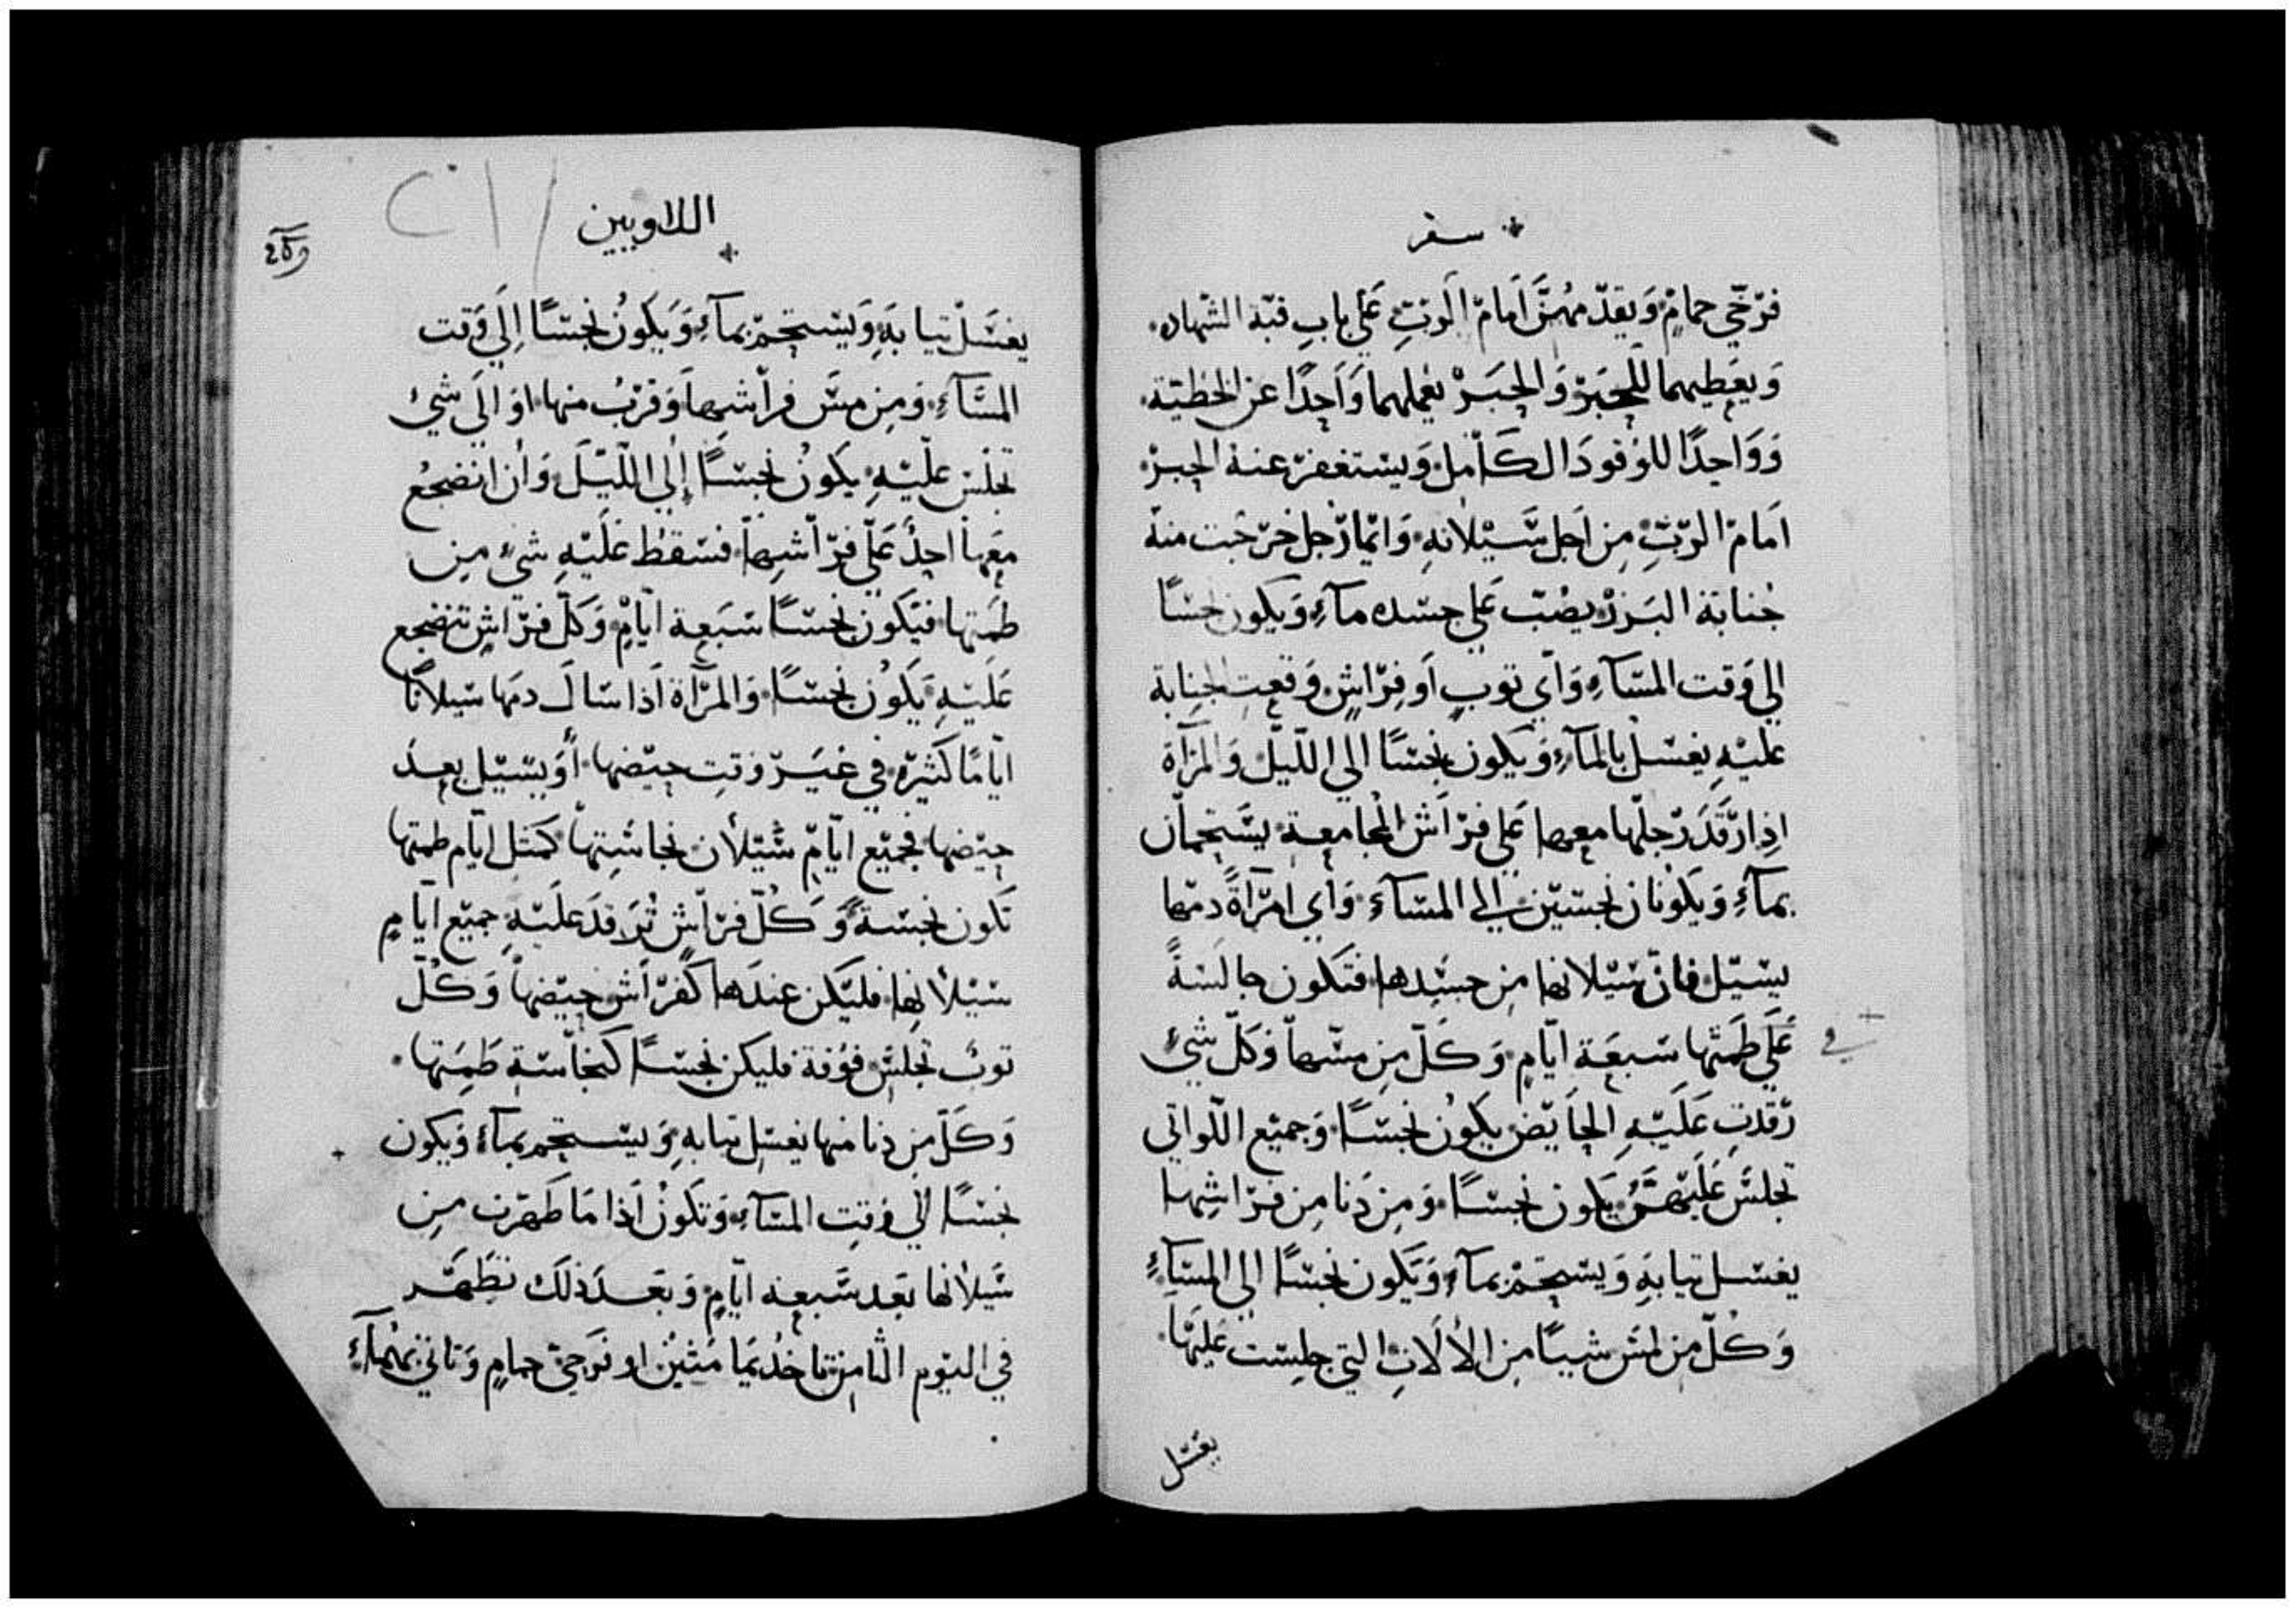 سفر
فرخي حمام ويقدمهن امام الرب على باب قبة الشهاده
ويعطيهما للحبر والحبر يعملهما واحدًا عن الخطية
وواحدًا للوقود الكامل ويستغفر عنه الحبر
امام الرب من اجل سيلانه وايما رجل خرجت منه
جنابة البزر يصب على جسده مآء ويكون نجسًا
الي وقت المسآء واي توب او فراش وقعت الجنابة
عليه يغسل بالمآء ويكون نجسًا الي الليل والمرآة
اذا رقد رجلها معها على فراش المجامعة يستحمان
بمآء ويكونان نجسين الى المسآء واي امرآة دمها
يسيل فان سيلانها من جسدها فتكون جالسةً
على طمتها سبعة ايام وكل من مسها وكل شيء
في
رقدت عليه الحايض يكون نجسًا وجميع اللواتي
تجلس عليهن يكون نجسًا ومن دنا من فراشها
يغسل تيابه ويستحم بمآء ويكون نجسًا الي المسآء
وكل من لمس شيًا من الالات التي جلست عليها
يغسل
اللاويين
يغسل تيابه ويستحم بمآء ويكون نجسًا الي وقت
المسآء ومن مس فراشها وقرب منها او الي شيء
تجلس عليه يكون نجسًا إلي الليل وان انضجع
معها احد على فراشها فسقط عليه شيء من
طمتها فيكون نجسًا سبعة ايام وكل فراش تنضجع
عليه يكون نجسًا والمرآة اذا سال دمها سيلانًا
ايامًا كثيره في غير وقت حيضها او يسيل بعد
حيضها فجميع ايام سيلان نجاستها كمتل ايام طمتها
تكون نجسة وكل فراش ترقد عليه جميع ايام
سيلانها فليكن عندها كفراش حيضها وكل
توب تجلس فوقة فليكن نجسًا كنجاسة طمتها
وكل من دنا منها يغسل تيابه ويستحم بمآء ويكون
نجسًا الي وقت المسآء وتكون اذا ما طهرت من
سيلانها بعد سبعة ايام وبعد ذلك تطهر
في اليوم الثامن تاخد يمامتين او فرخي حمام وتاتي بهما